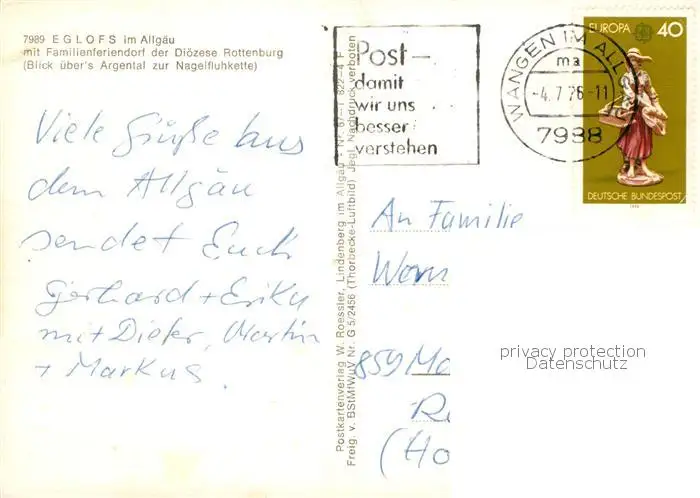 7989 EGLOFS im Allgäu
mit Familienferiendorf der Diözese Rottenburg
(Blick über's Argental zur Nagelfluhkette)
Viele Grüße aus
dem Allgäu
sendet Euch
Gerhard + Erika
mit Dieter, Martin
+ Markus.
Postkartenverlag W. Roessler, Lindenberg im Allgäu
Freig. v. BStMfWuV Nr. G 5/2456 (Thorbecke-Luftbild) Jegl. Nachdruck verboten
Post-
damit
wir uns
besser
verstehen
WANGEN IM ALLGÄU
ma
-4.7.76-11
7988
EUROPA 40
DEUTSCHE BUNDESPOST
1976
An Familie
Wern
859 Ma
(Ho
privacy protection
Datenschutz